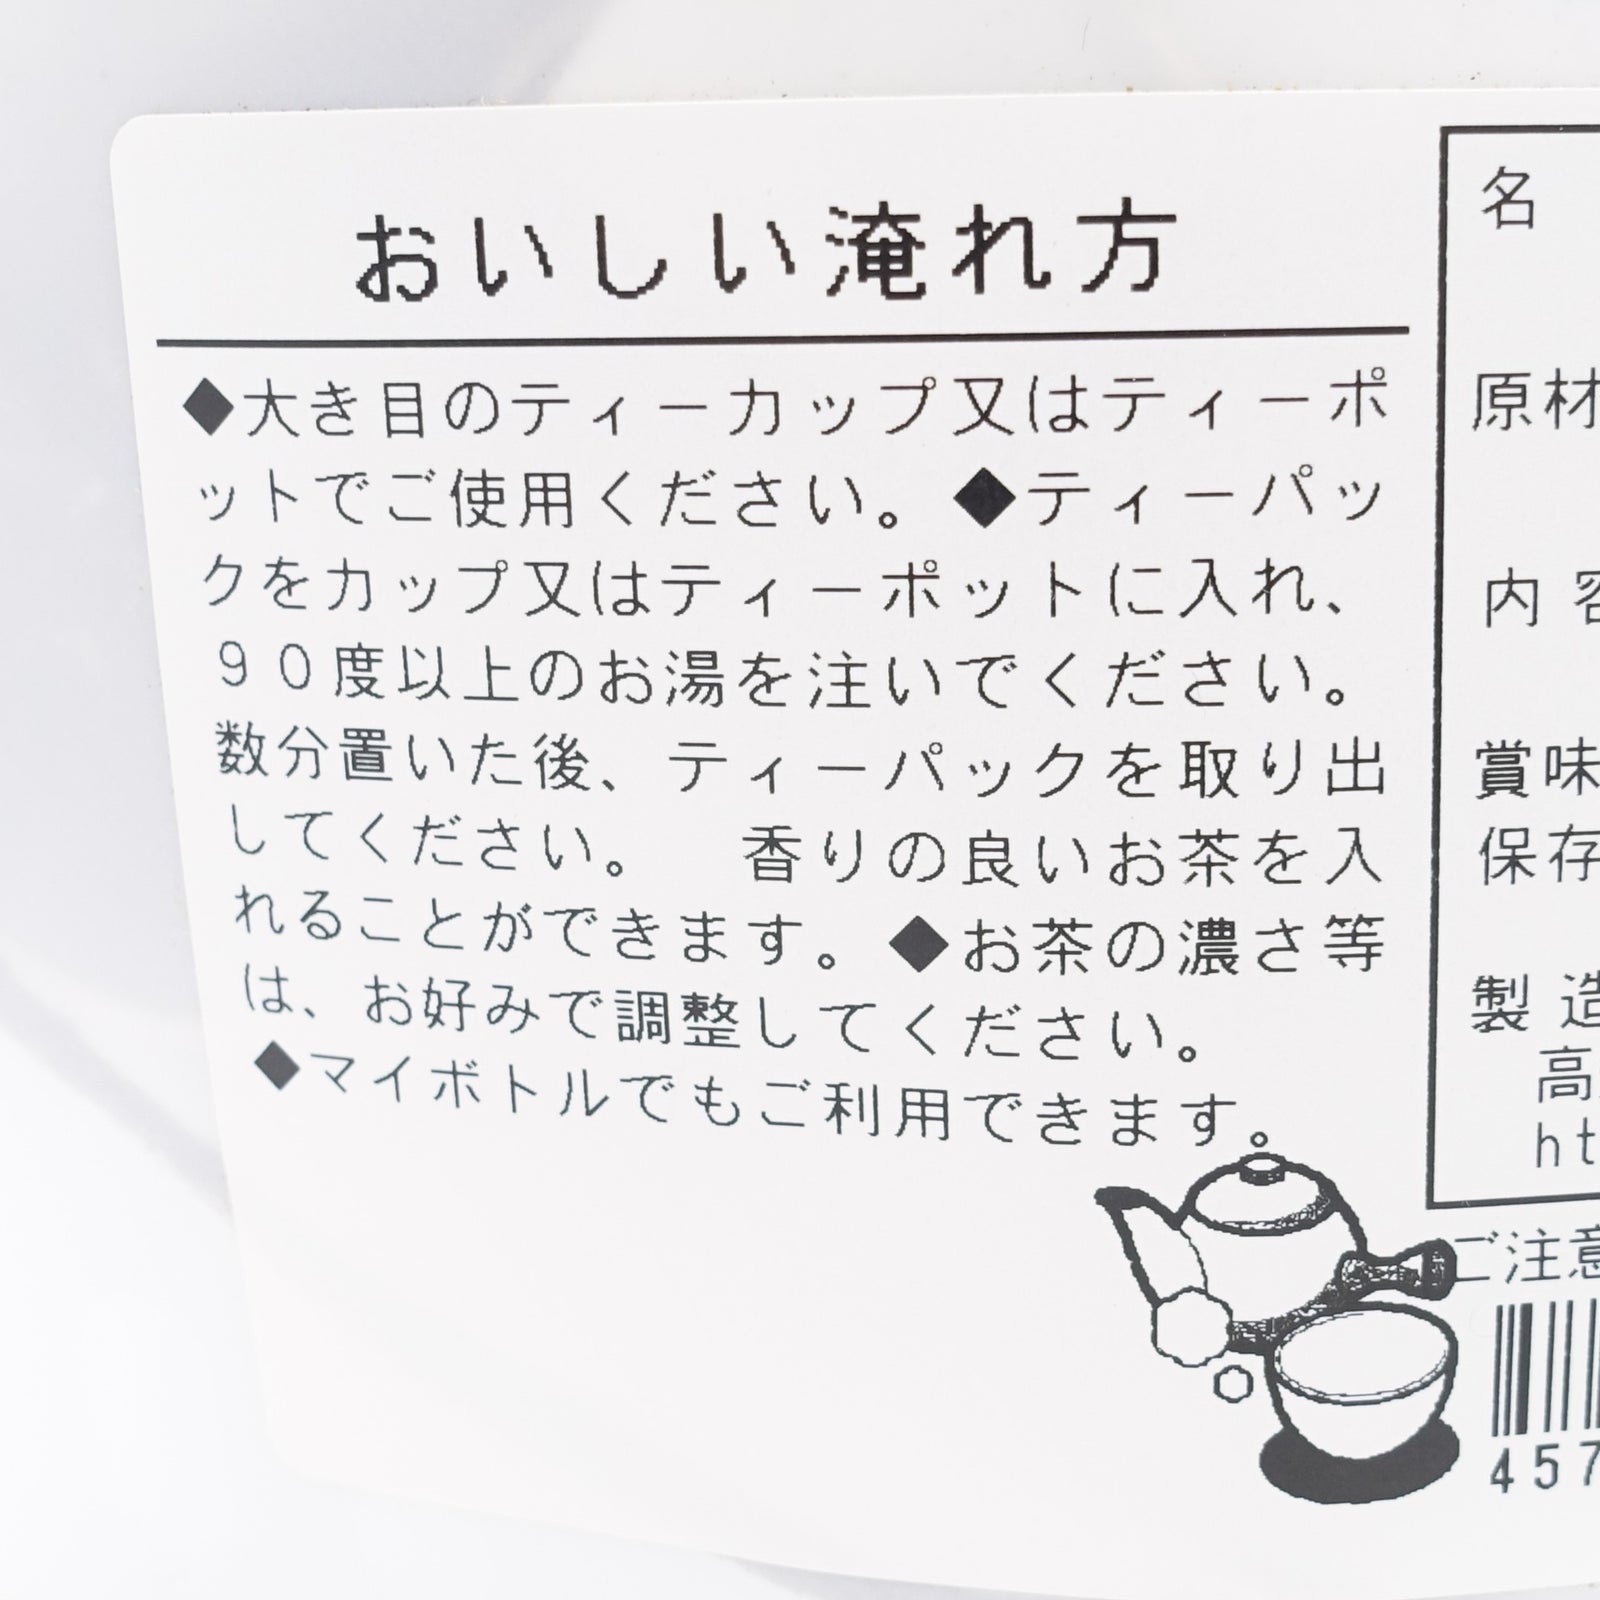 おいしい淹れ方
◆大き目のティーカップ又はティーポ
ットでご使用ください。◆ティーパッ
クをカップ又はティーポットに入れ、
90度以上のお湯を注いでください。
数分置いた後、ティーパックを取り出
してください。　香りの良いお茶を入
れることができます。◆お茶の濃さ等
は、お好みで調整してください。
◆マイボトルでもご利用できます。
名
原材
内容
賞味
保存
製造
高
ht
ご注意
457